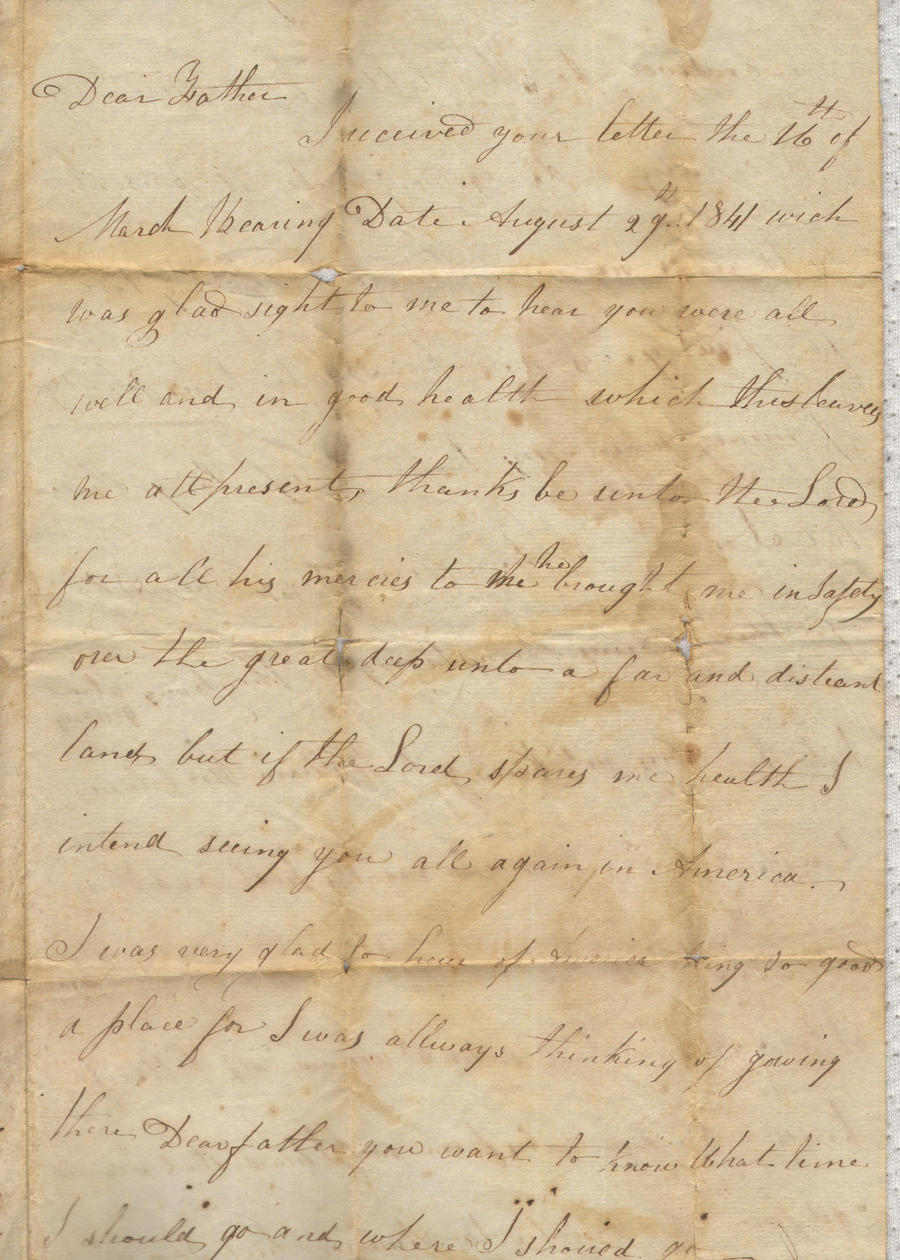 Dear Father
I received your letter the 16th of
March Bearing Date August 29th 1841 wich
was glad sight to me to hear you were all
well and in good health which this leaves
me att present thanks be unto the Lord
for all his mercies to me he brought me in safety
over the great deep unto a far and disteant
land but if the Lord spares me health I
intend seeing you all again in America.
I was very glad to hear of America being so good
a place for I was allways thinking of gowing
there Dear father you want to know What time
I should go and where I should go